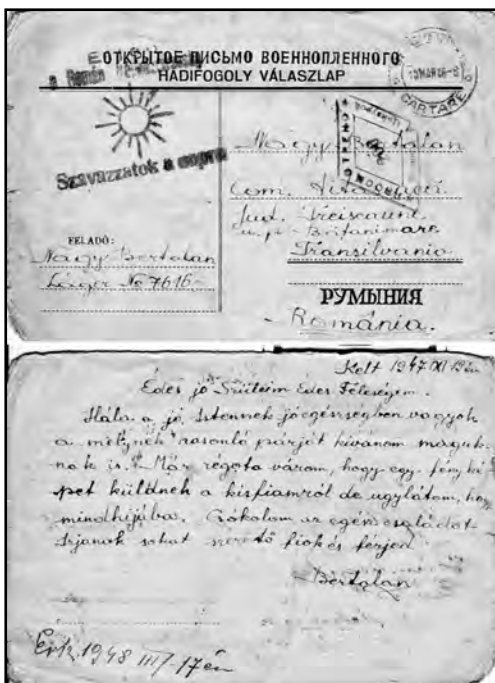 ОТКРЫТОЕ ПИСЬМО ВОЕННОПЛЕННОГО
HADIFOGOLY VÁLASZLAP
Szavazzatok a napra
Nagy Bertalan
Com.
Jud.
Transilvania
FELADÓ:
Nagy Bertalan
Láger No 7616
РУМЫНИЯ
România.
Kelt 1947 XI
Édes jó Szüleim Édes Feleségem.
Hála a jó Istennek jóegésségben vagyok
a melynek hasonló párját kivánom maguk-
nak is. Már régota várom, hogy egy fényké
pet küldnek a kisfiamról de ugylátom, hogy
mindhijába. Csókolom az egész családot
Irjanak sokat szerető fiok és férjen
Bertalan
Érk. 1948 III-17én